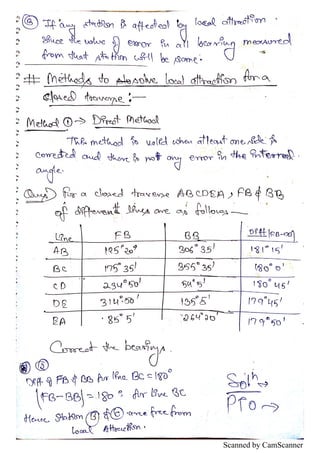 ③ If any station is affected by local attraction.
Since the value of error in all bearing measured
from that station will be same.
# Methods to solve local attraction for a
closed traverse :—
Method ① → Direct Method
This method is valid when atleast one side is
corrected and there is not any error in the internal
angle.
Ques) For a closed traverse ABCDEA, FB & BB
of different lines are as follows—
Line FB BB Diff (FB-BB)
AB 306°35' 181°15'
BC 175°35' 355°35' 180°0'
CD 234°50' 54°5' 180°45'
DE 314°50' 135°5' 179°45'
EA 85°5' 264°20' 179°50'
Correct the bearings.
Diff. of FB & BB for line BC = 180°
|FB-BB| = 180° for line BC
Hence Station Ⓑ & Ⓒ are free from
Local Attraction.
Sol^n →
PTO →
Scanned by CamScanner